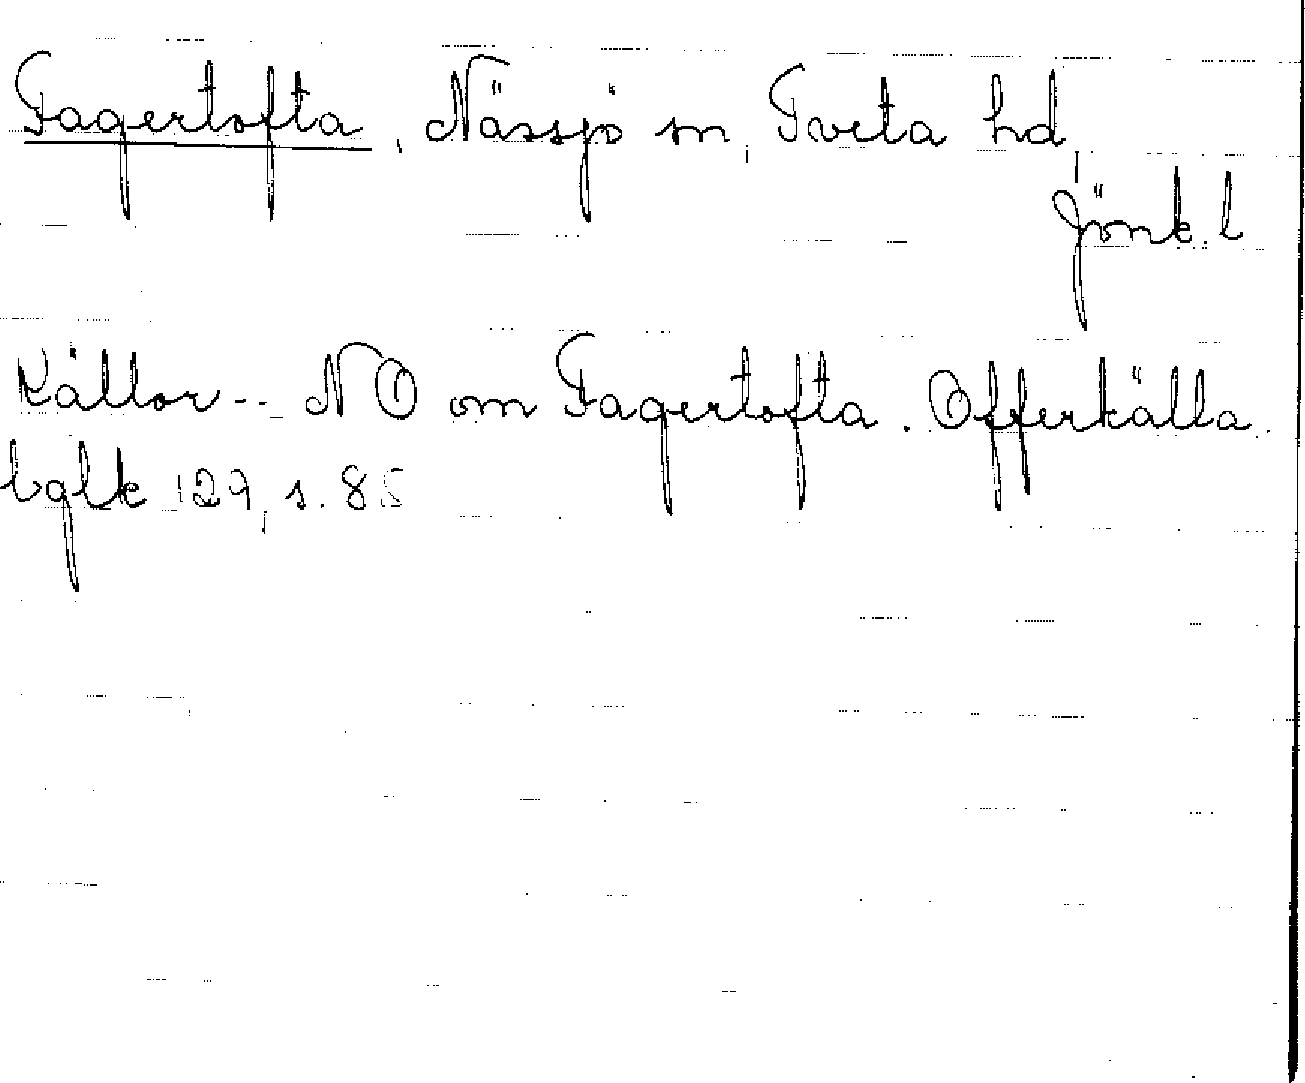 Fagertofta, Nässjö sn, Tveta hd,
Jönk. l
Källor -- NO om Fagertofta. Offerkälla.
bglk 129, s. 85